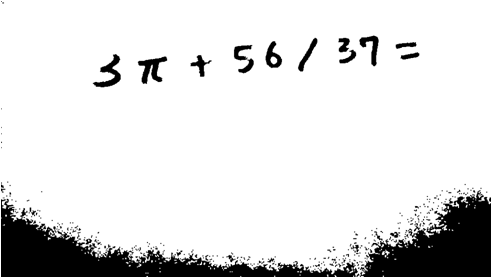 3π + 56 / 37 =